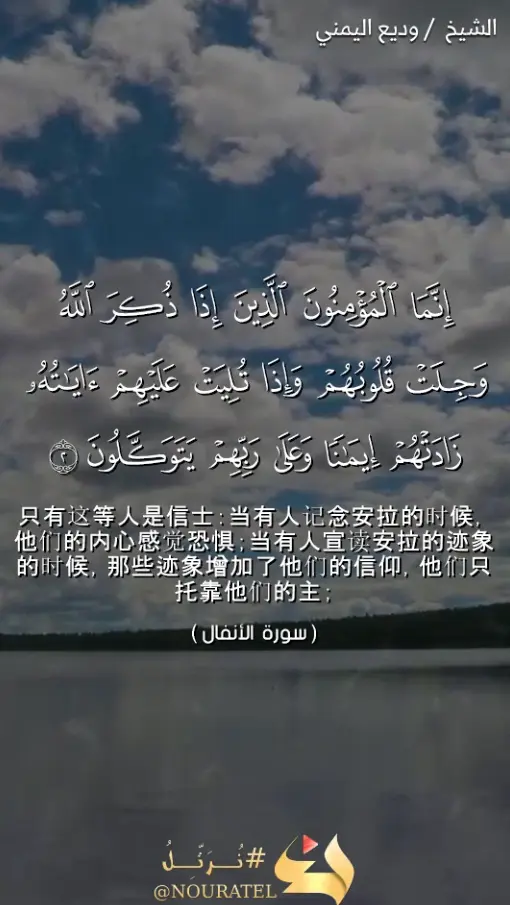 الشيخ / وديع اليمني
إِنَّمَا ٱلْمُؤْمِنُونَ ٱلَّذِينَ إِذَا ذُكِرَ ٱللَّهُ
وَجِلَتْ قُلُوبُهُمْ وَإِذَا تُلِيَتْ عَلَيْهِمْ ءَايَٰتُهُۥ
زَادَتْهُمْ إِيمَٰنًا وَعَلَىٰ رَبِّهِمْ يَتَوَكَّلُونَ ٢
只有这等人是信士:当有人记念安拉的时候,
他们的内心感觉恐惧;当有人宣读安拉的迹象
的时候, 那些迹象增加了他们的信仰, 他们只
托靠他们的主;
(سورة الأنفال)
#نُـرَتِّـلُ
@NOURATEL